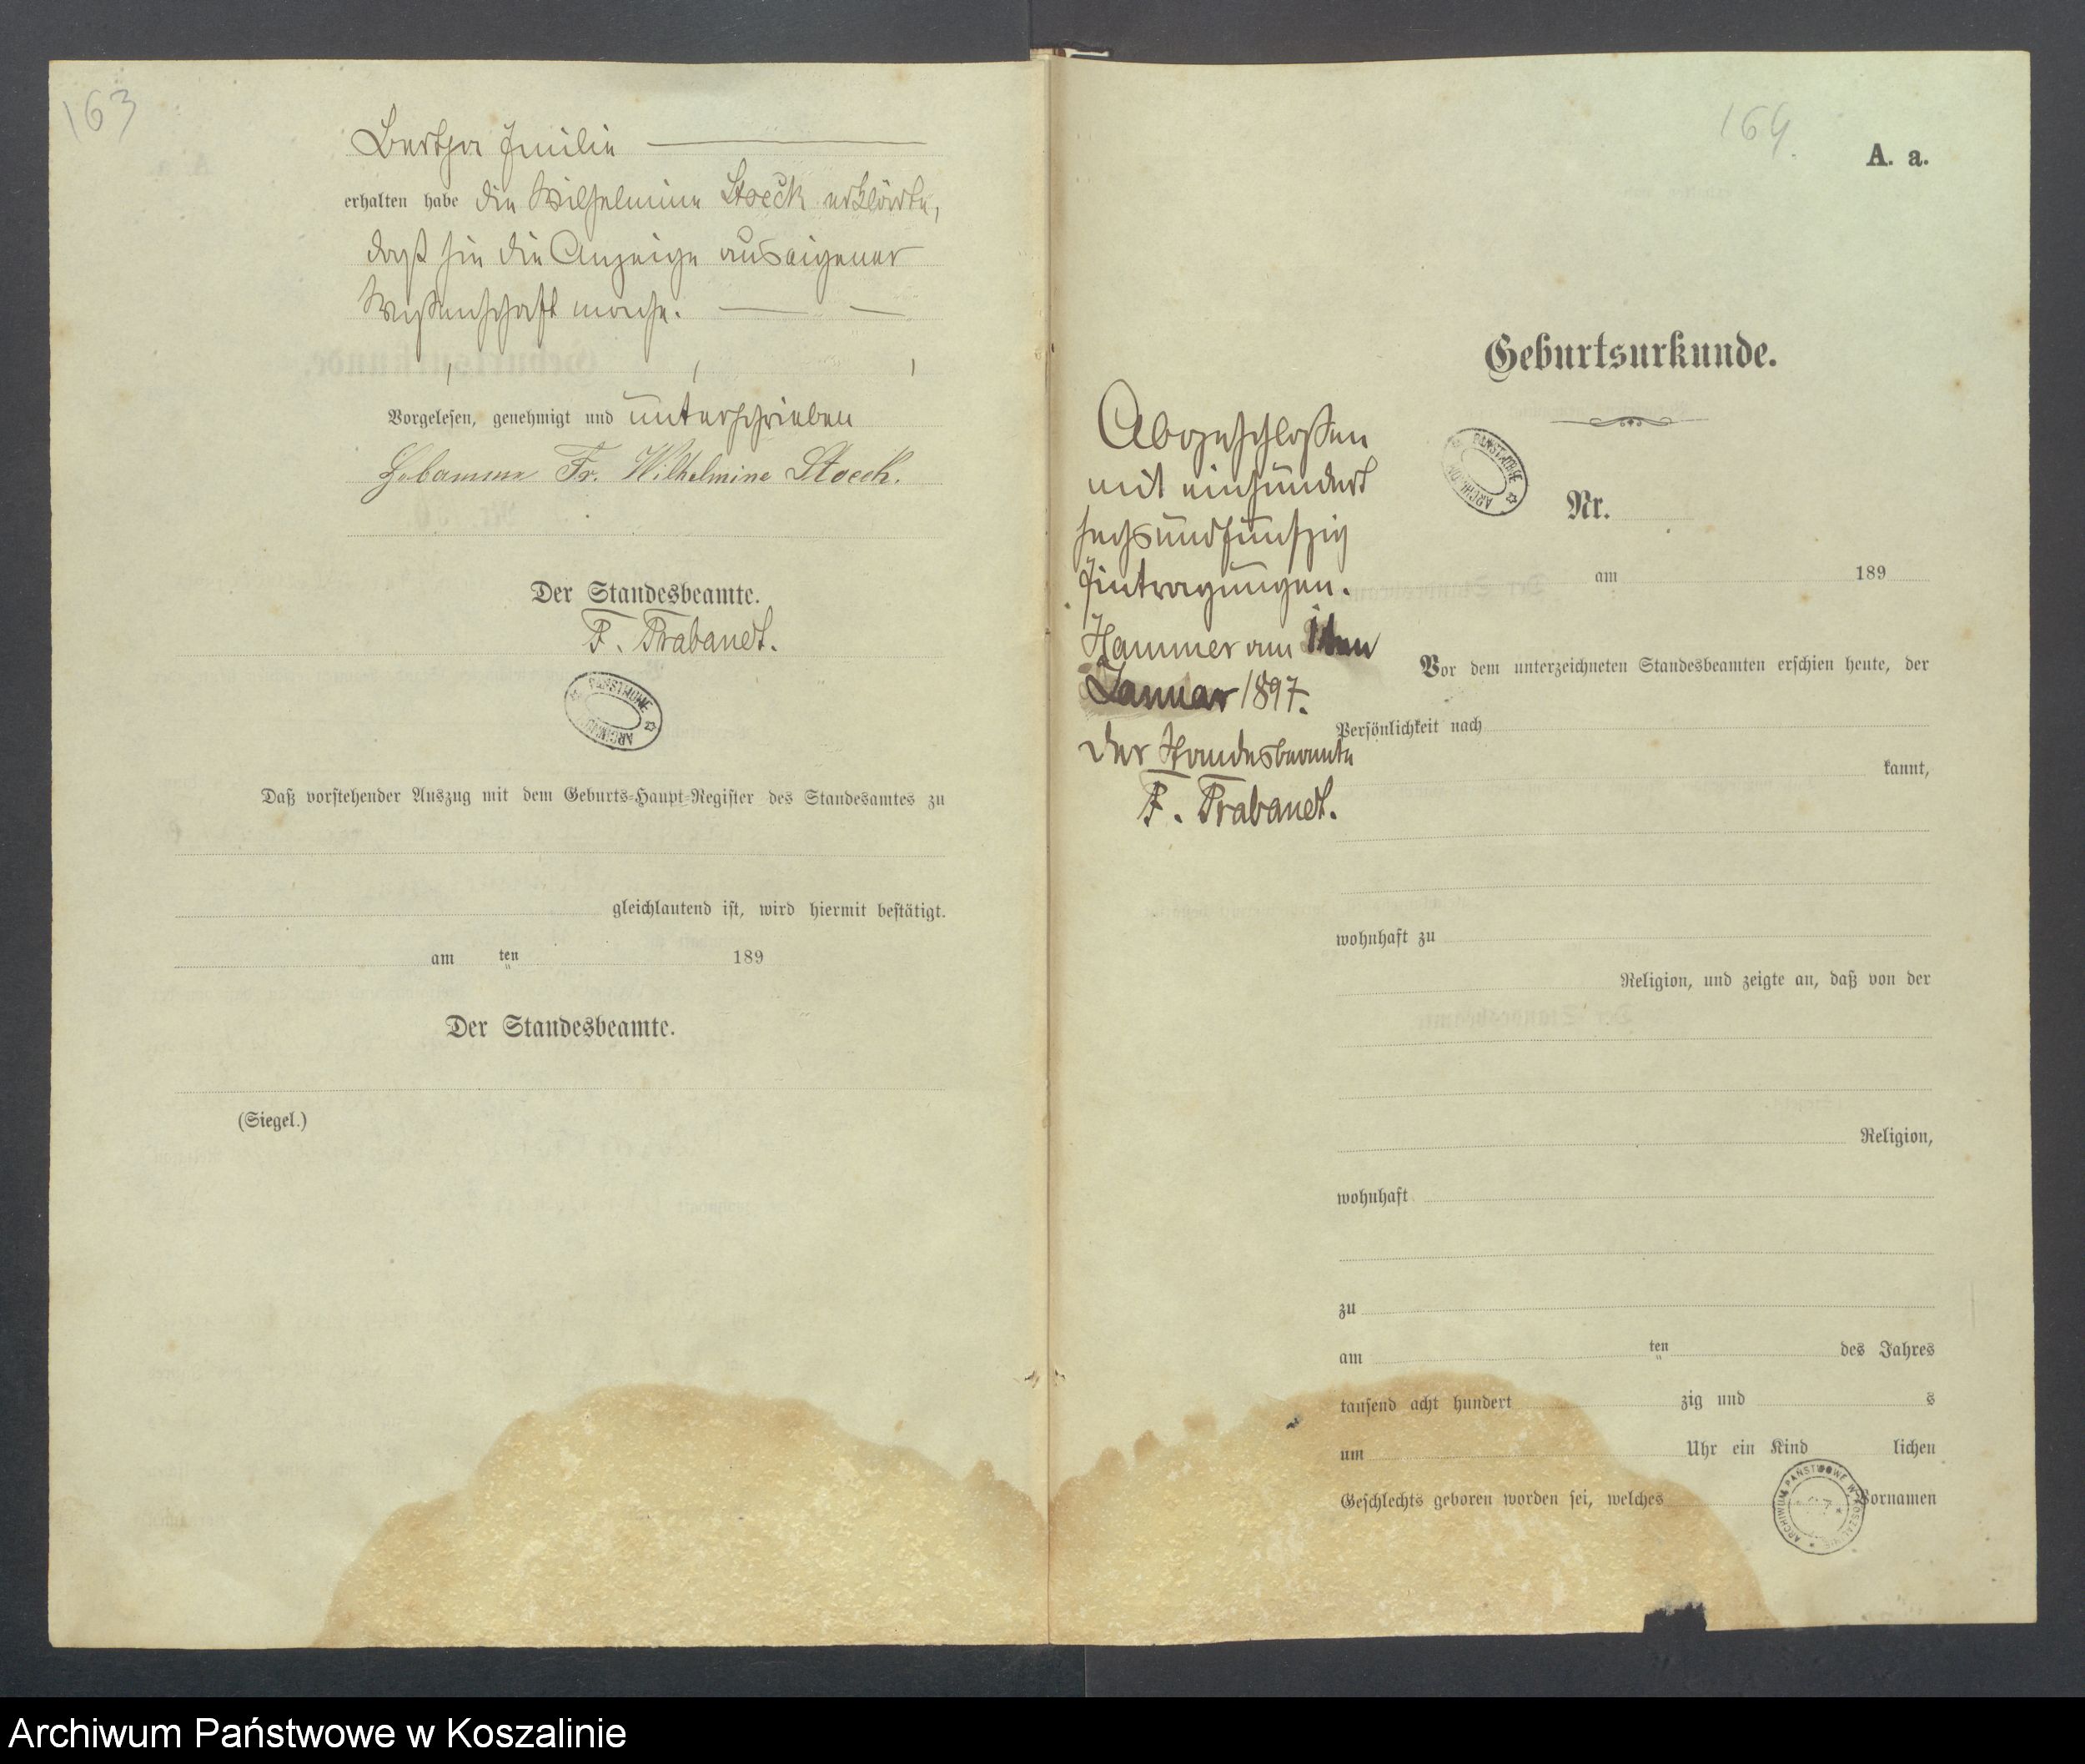 163
Bertha Emilie
erhalten habe die Wilhelmine Stoeck erklärte,
daß sie die Anzeige aus eigener
Wissenschaft mache.
Vorgelesen, genehmigt und unterschrieben
Hebamme Fr. Wilhelmine Stoeck.
Der Standesbeamte.
F. Trabandt.
Daß vorstehender Auszug mit dem Geburts-Haupt-Register des Standesamtes zu
gleichlautend ist, wird hiermit bestätigt.
am ten 189
Der Standesbeamte.
(Siegel.)
164.
A. a.
Geburtsurkunde.
Abgeschlossen
mit einhundert
sechsundfünfzig
Eintragungen.
Hammer am 1ten
Januar 1897.
Der Standesbeamte
F. Trabandt.
Nr.
am 189
Vor dem unterzeichneten Standesbeamten erschien heute, der
Persönlichkeit nach
kannt,
wohnhaft zu
Religion, und zeigte an, daß von der
Religion,
wohnhaft
zu
am ten des Jahres
tausend acht hundert zig und s
um Uhr ein Kind lichen
Geschlechts geboren worden sei, welches Vornamen
ARCHIWUM PAŃSTWOWE W KOSZALINIE
Archiwum Państwowe w Koszalinie